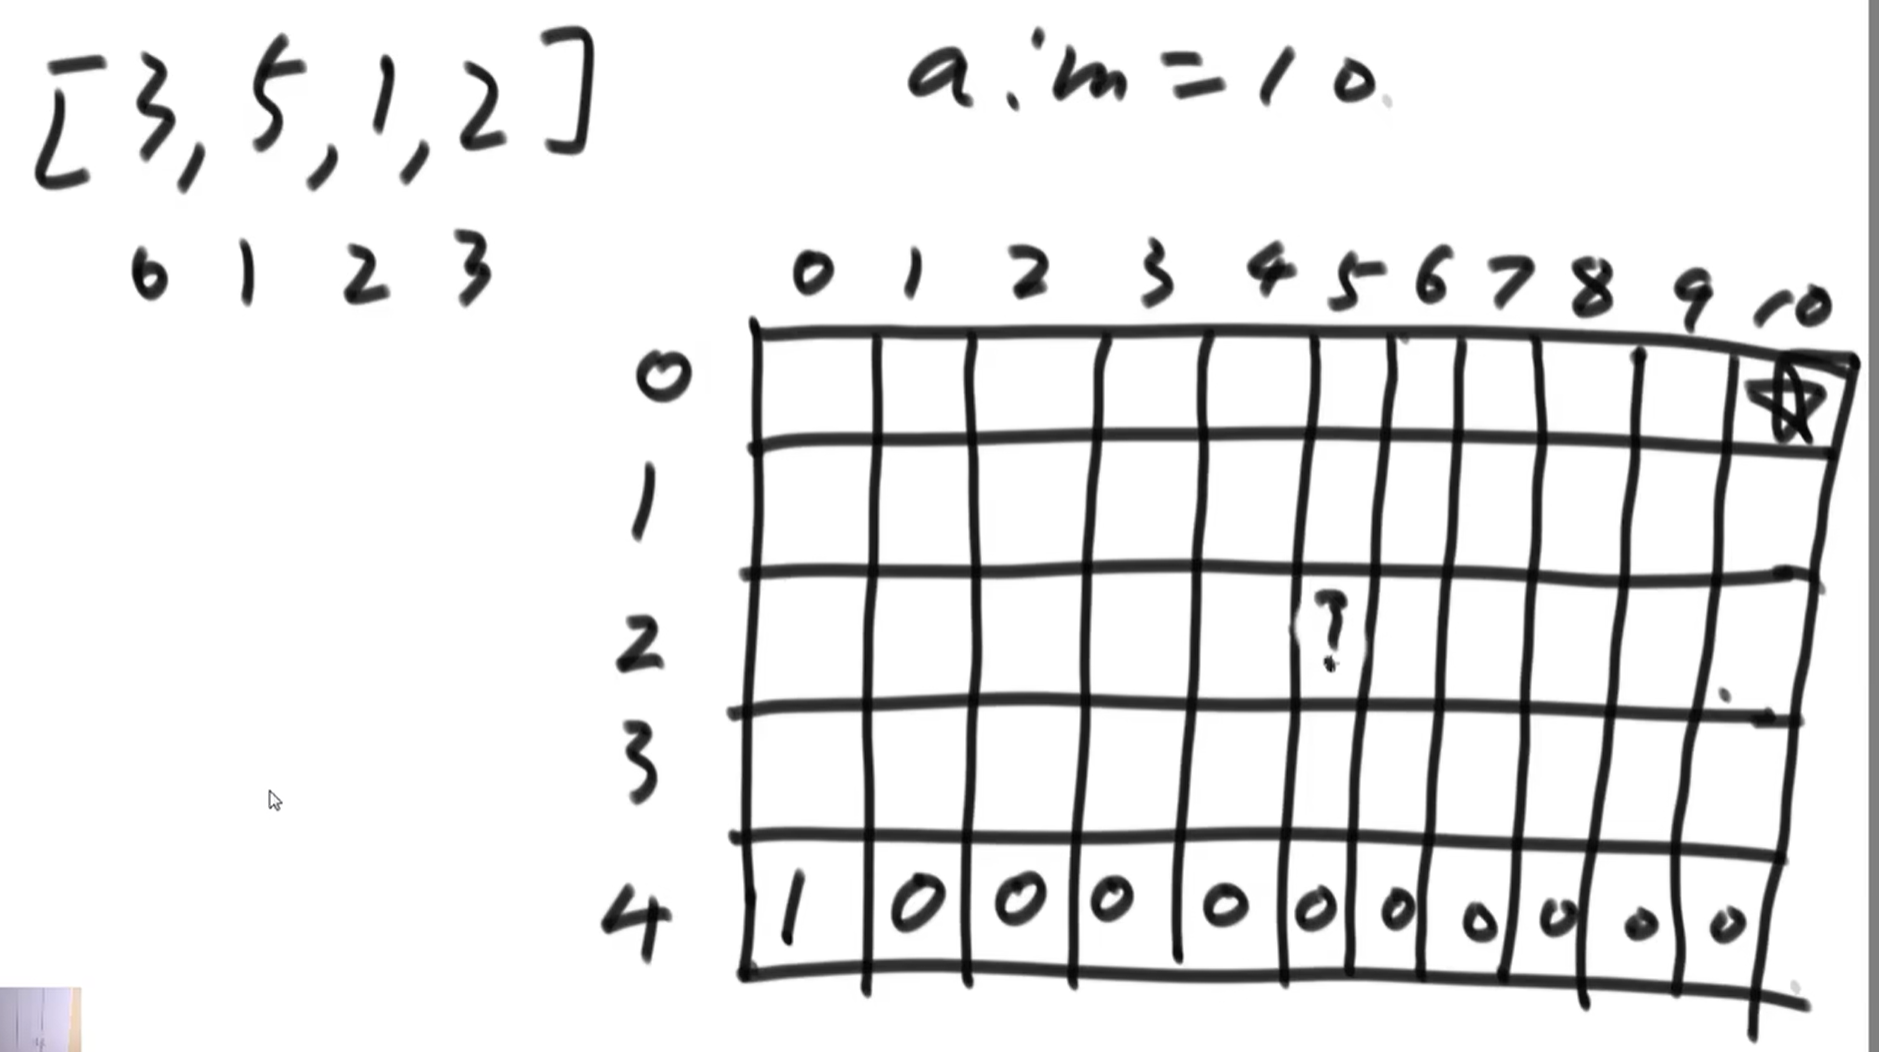 [3, 5, 1, 2]
aim=10
0 1 2 3
0 1 2 3 4 5 6 7 8 9 10
0
1
2 ?
3
4 1 0 0 0 0 0 0 0 0 0 0